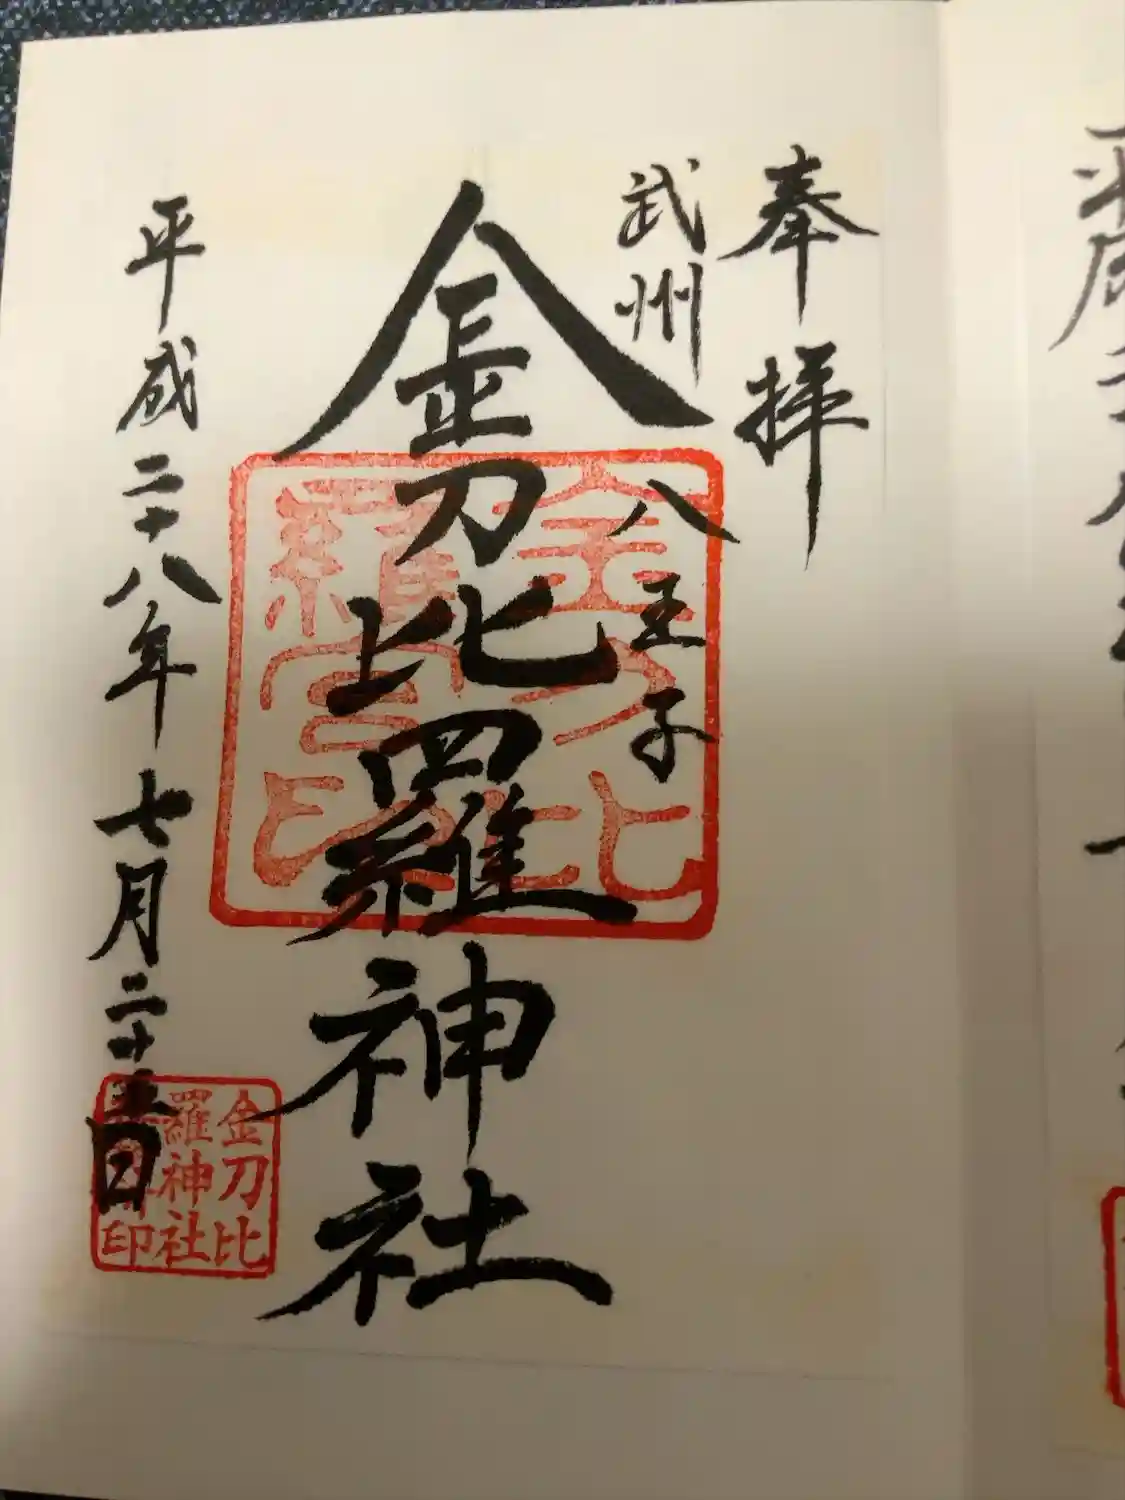 奉拝
武州 八王子
金刀比羅神社
平成二十八年 七月二十五日
金刀比
羅宮印
金刀比
羅神社
印